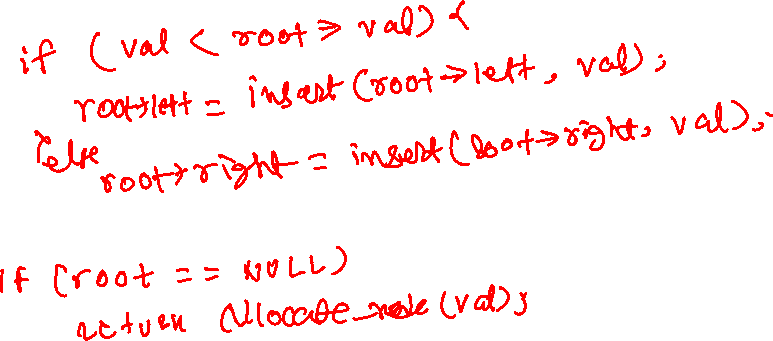 if (val < root->val) {
root->left = insert(root->left, val);
}else
root->right = insert(root->right, val);
if (root == NULL)
return allocate_node(val);